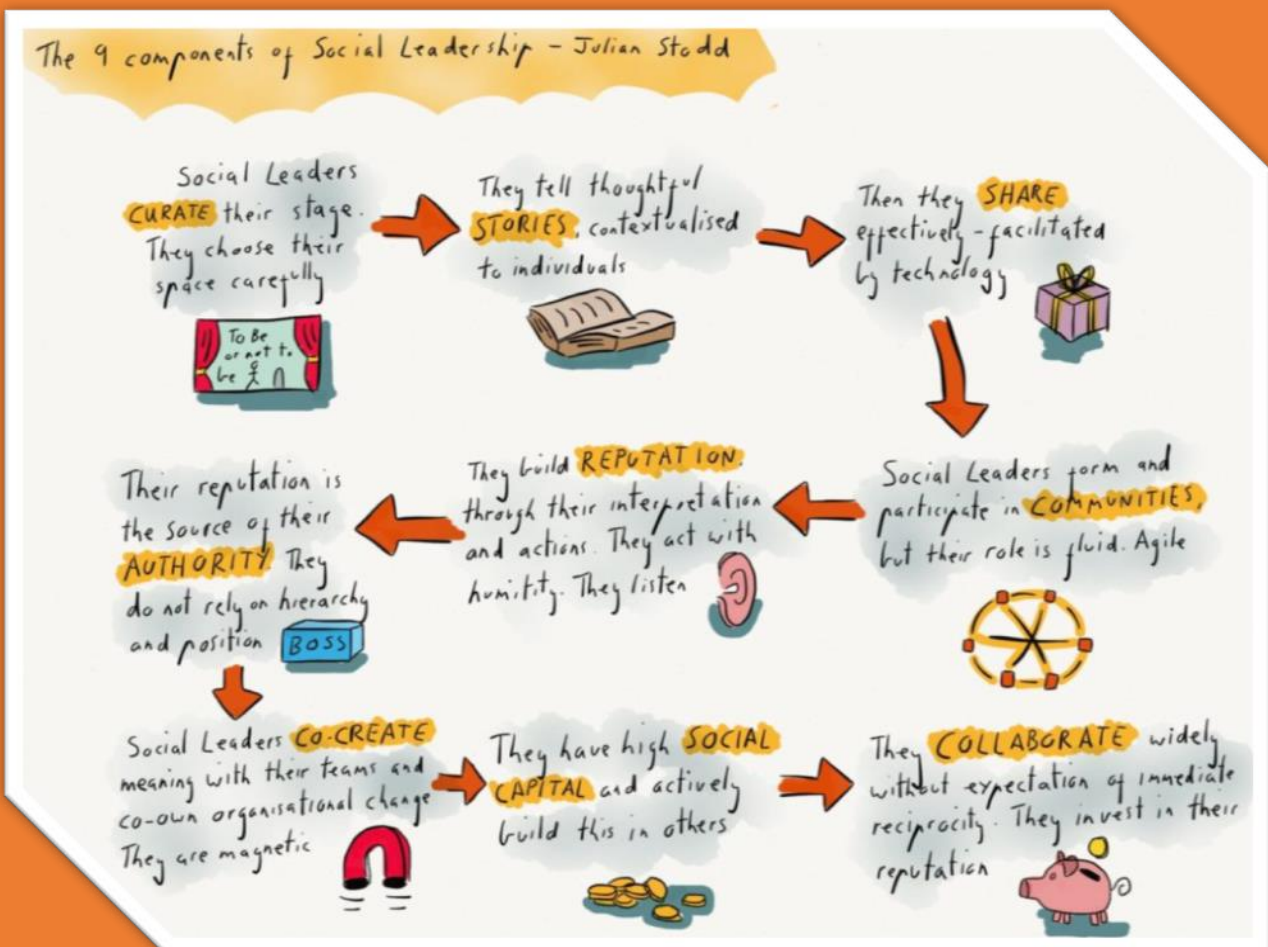 The 9 components of Social Leadership - Julian Stodd
Social Leaders
CURATE their stage.
They choose their
space carefully
To Be
or not to
be
They tell thoughtful
STORIES, contextualised
to individuals
Then they SHARE
effectively - facilitated
by technology
Social Leaders form and
participate in COMMUNITIES,
but their role is fluid. Agile
They build REPUTATION.
through their interpretation
and actions. They act with
humility. They listen
Their reputation is
the source of their
AUTHORITY. They
do not rely on hierarchy
and position
BOSS
Social Leaders CO-CREATE
meaning with their teams and
co-own organisational change
They are magnetic
They have high SOCIAL
CAPITAL and actively
build this in others
They COLLABORATE widely
without expectation of immediate
reciprocity. They invest in their
reputation